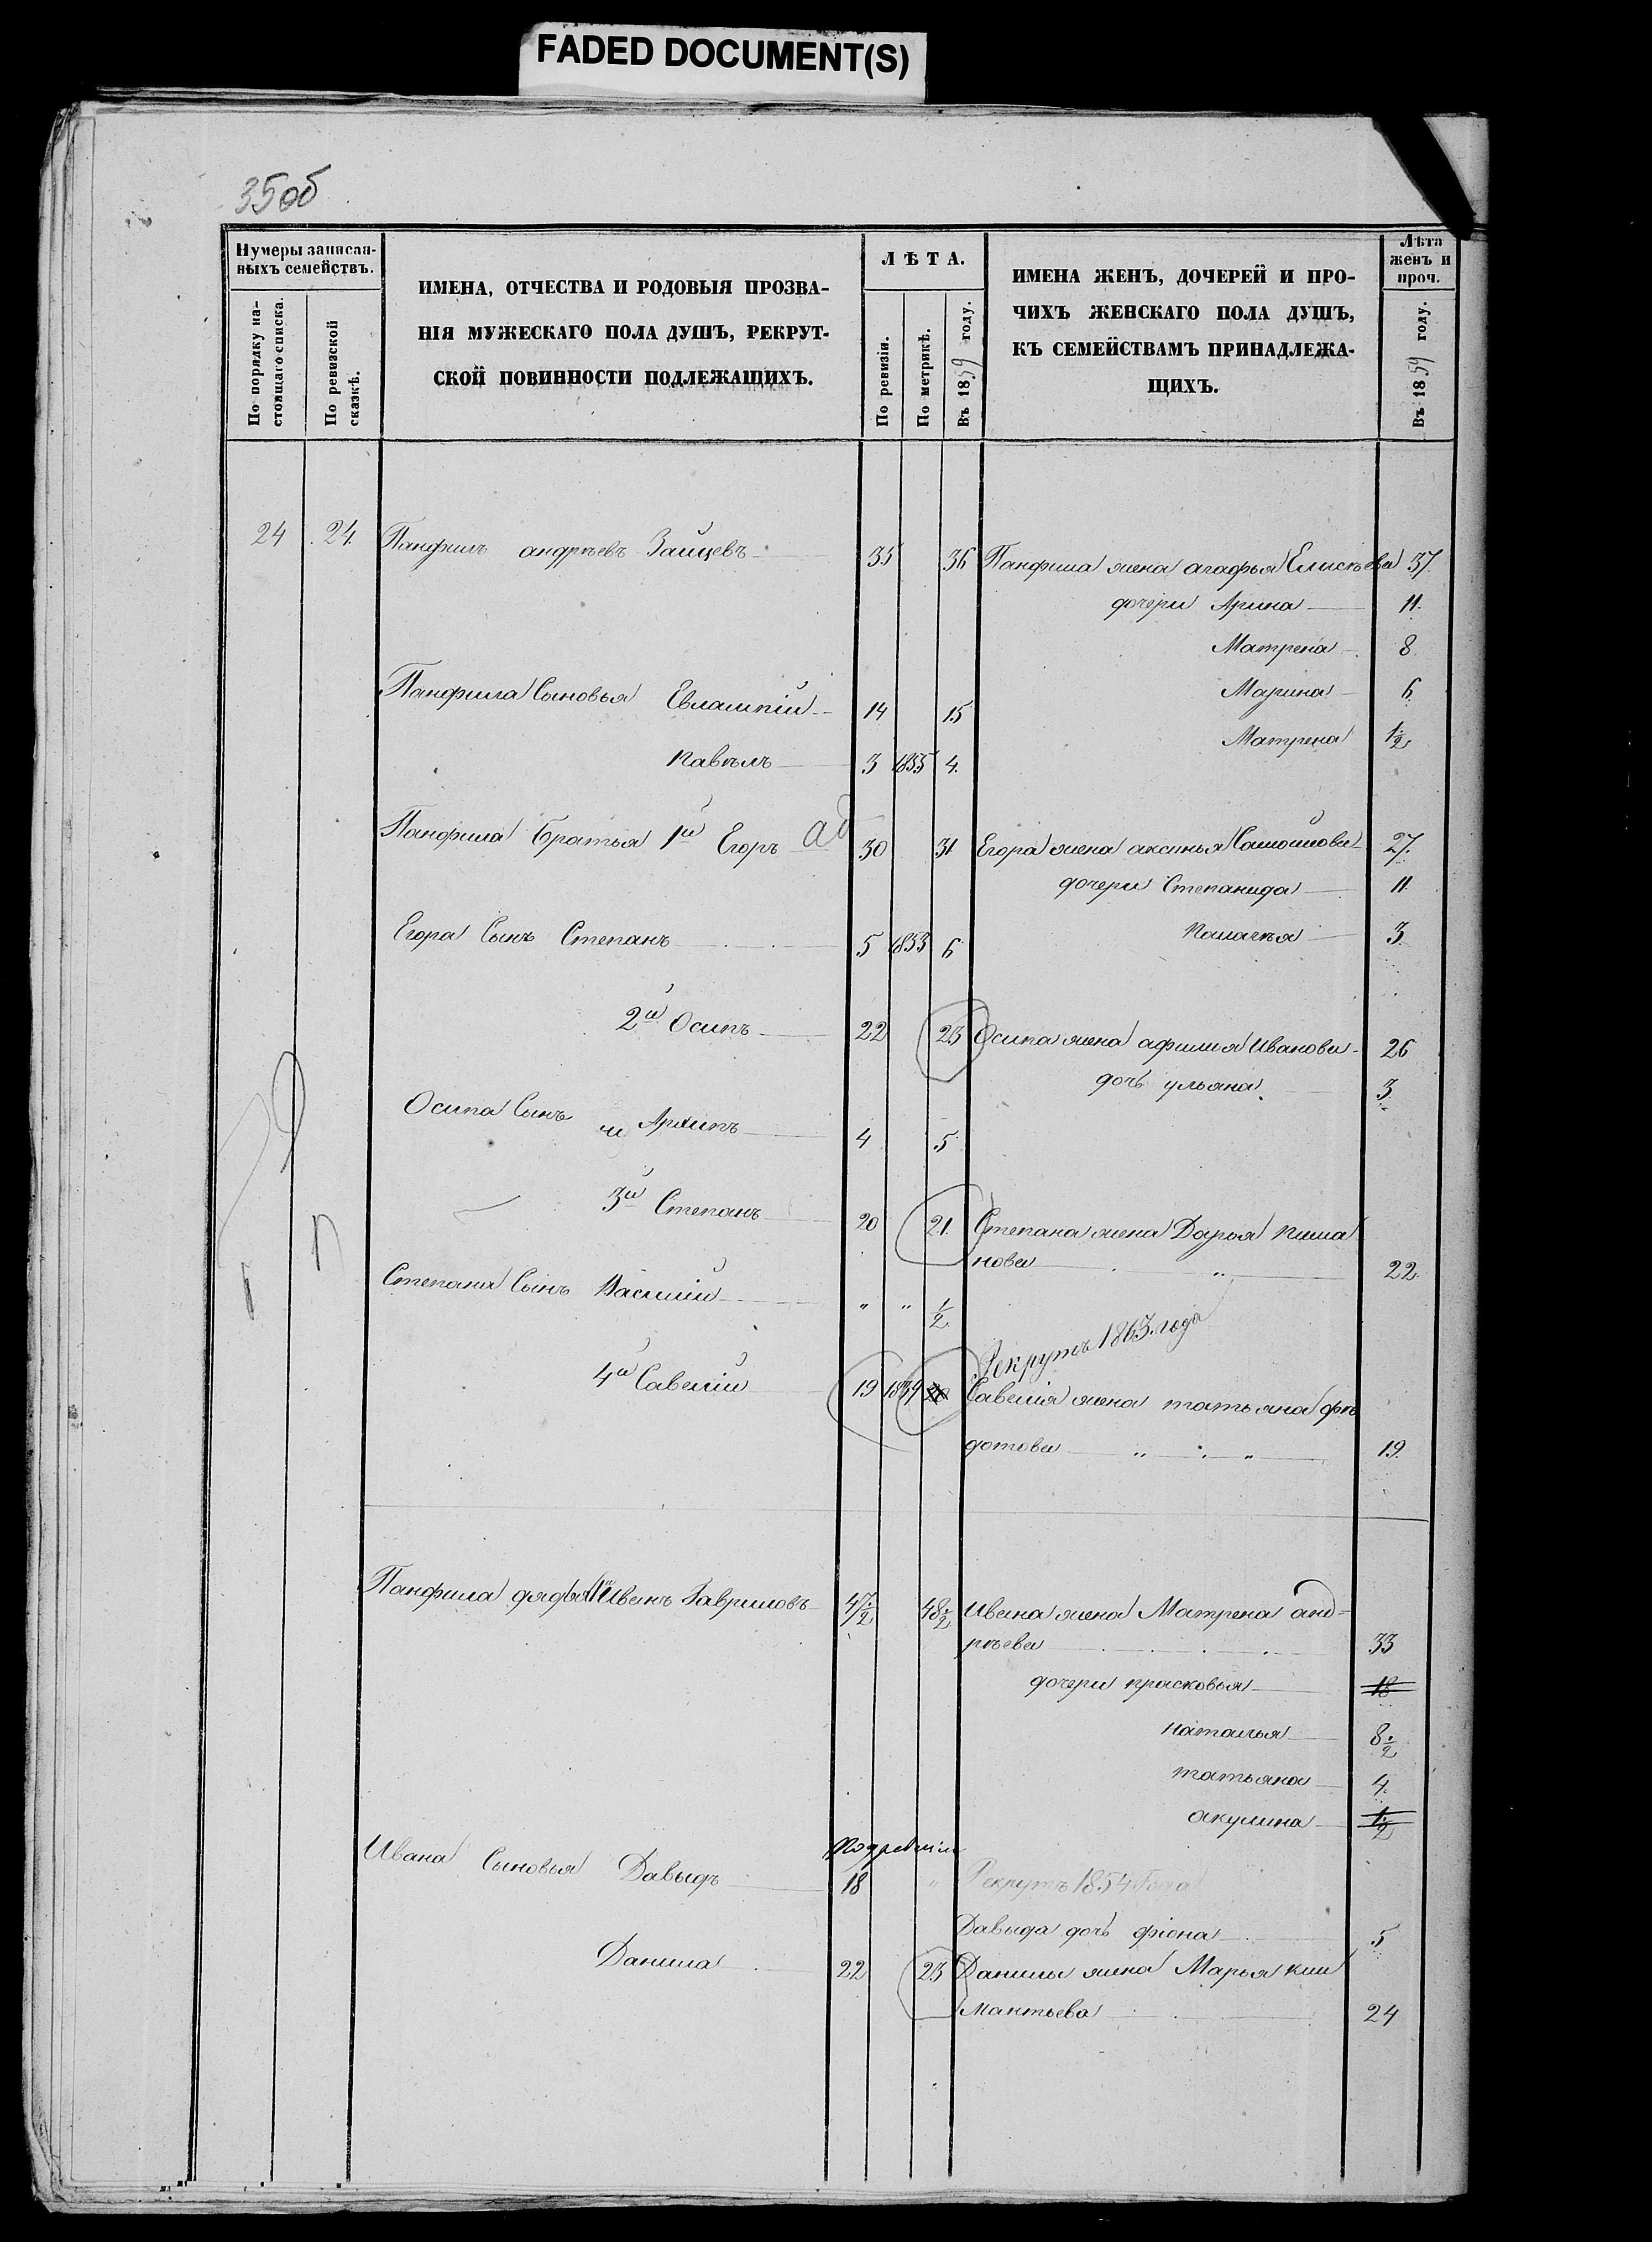 FADED DOCUMENT(S)
35об
Нумеры записан-
ныхъ семействъ.
По порядку на-
стоящаго списка.
По ревизской
сказкѣ.
ИМЕНА, ОТЧЕСТВА И РОДОВЫЯ ПРОЗВА-
НІЯ МУЖЕСКАГО ПОЛА ДУШЪ, РЕКРУТ-
СКОЙ ПОВИННОСТИ ПОДЛЕЖАЩИХЪ.
ЛѢТА.
По ревизіи.
По метрикѣ.
Въ 1859 году.
ИМЕНА ЖЕНЪ, ДОЧЕРЕЙ И ПРО-
ЧИХЪ ЖЕНСКАГО ПОЛА ДУШЪ,
КЪ СЕМЕЙСТВАМЪ ПРИНАДЛЕЖА-
ЩИХЪ.
Лѣта
женъ и
проч.
Въ 1859 году.
24 24. Панфилъ андрѣевъ Зайцевъ 35 36 Панфила жена агафья Елисѣева 37.
дочери Арина 11.
Матрена 8
Панфила Сыновья Евлампій 14 15 Марина 6
Матрена 1/2
павѣлъ 3 1855 4.
Панфила Братья 1й Егоръ 30 31 Егора жена аксинья Самойлова 27.
дочери Степанида 11.
Егора Сынъ Степанъ 5 1853 6 палагѣя 3.
2й Осипъ 22 23 Осипа жена афимья Иванова 26
дочь ульяна 3.
Осипа Сынъ Архипъ 4 5
3й Степанъ 20 21. Степана жена Дарья пима
нова 22
Степана Сынъ Василій " " 1/2
Рекрутъ 1863. года
4й Савелій 19 1839 20 Савелія жена татьяна фѣ
дотова 19.
Панфила дядья 1й Иванъ Гавриловъ 47 1/2 48 1/2 Ивана жена Матрена анд-
рѣева 33
дочери прасковья 18
наталья 8 1/2
татьяна 4.
акулина 1/2
по ревизіи
Ивана Сыновья Давыдъ 18 " Рекрутъ 1854 года
Давыда дочь фіона 5
Данила 22 23 Данилы жена Марья кли
мантьева 24